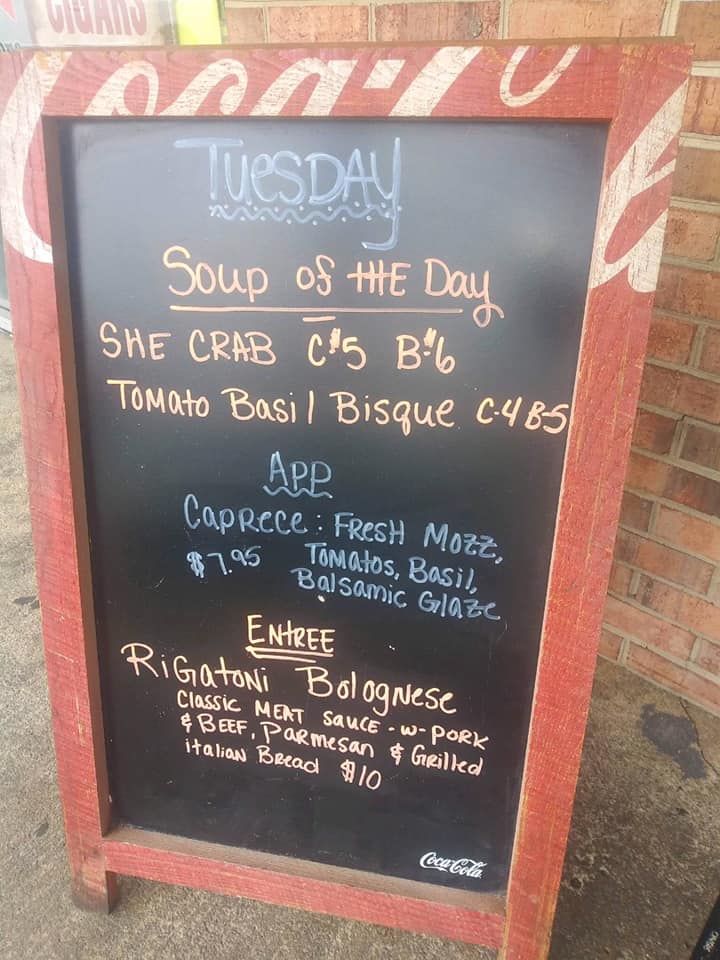 CIGARS
Coca-Cola
TUESDAY
Soup of tHE Day
SHE CRAB C$5 B$6
Tomato Basil Bisque C-4 B-5
APP
CAPRECE: FRESH MOZZ,
$7.95 TOMATOS, BASIL,
Balsamic Glaze
ENtREE
RiGatoNi BologNese
Classic MEAT SAUCE - W- PORK
& BEEF, PARMESAN & GRilled
italian Bread $10
Coca-Cola